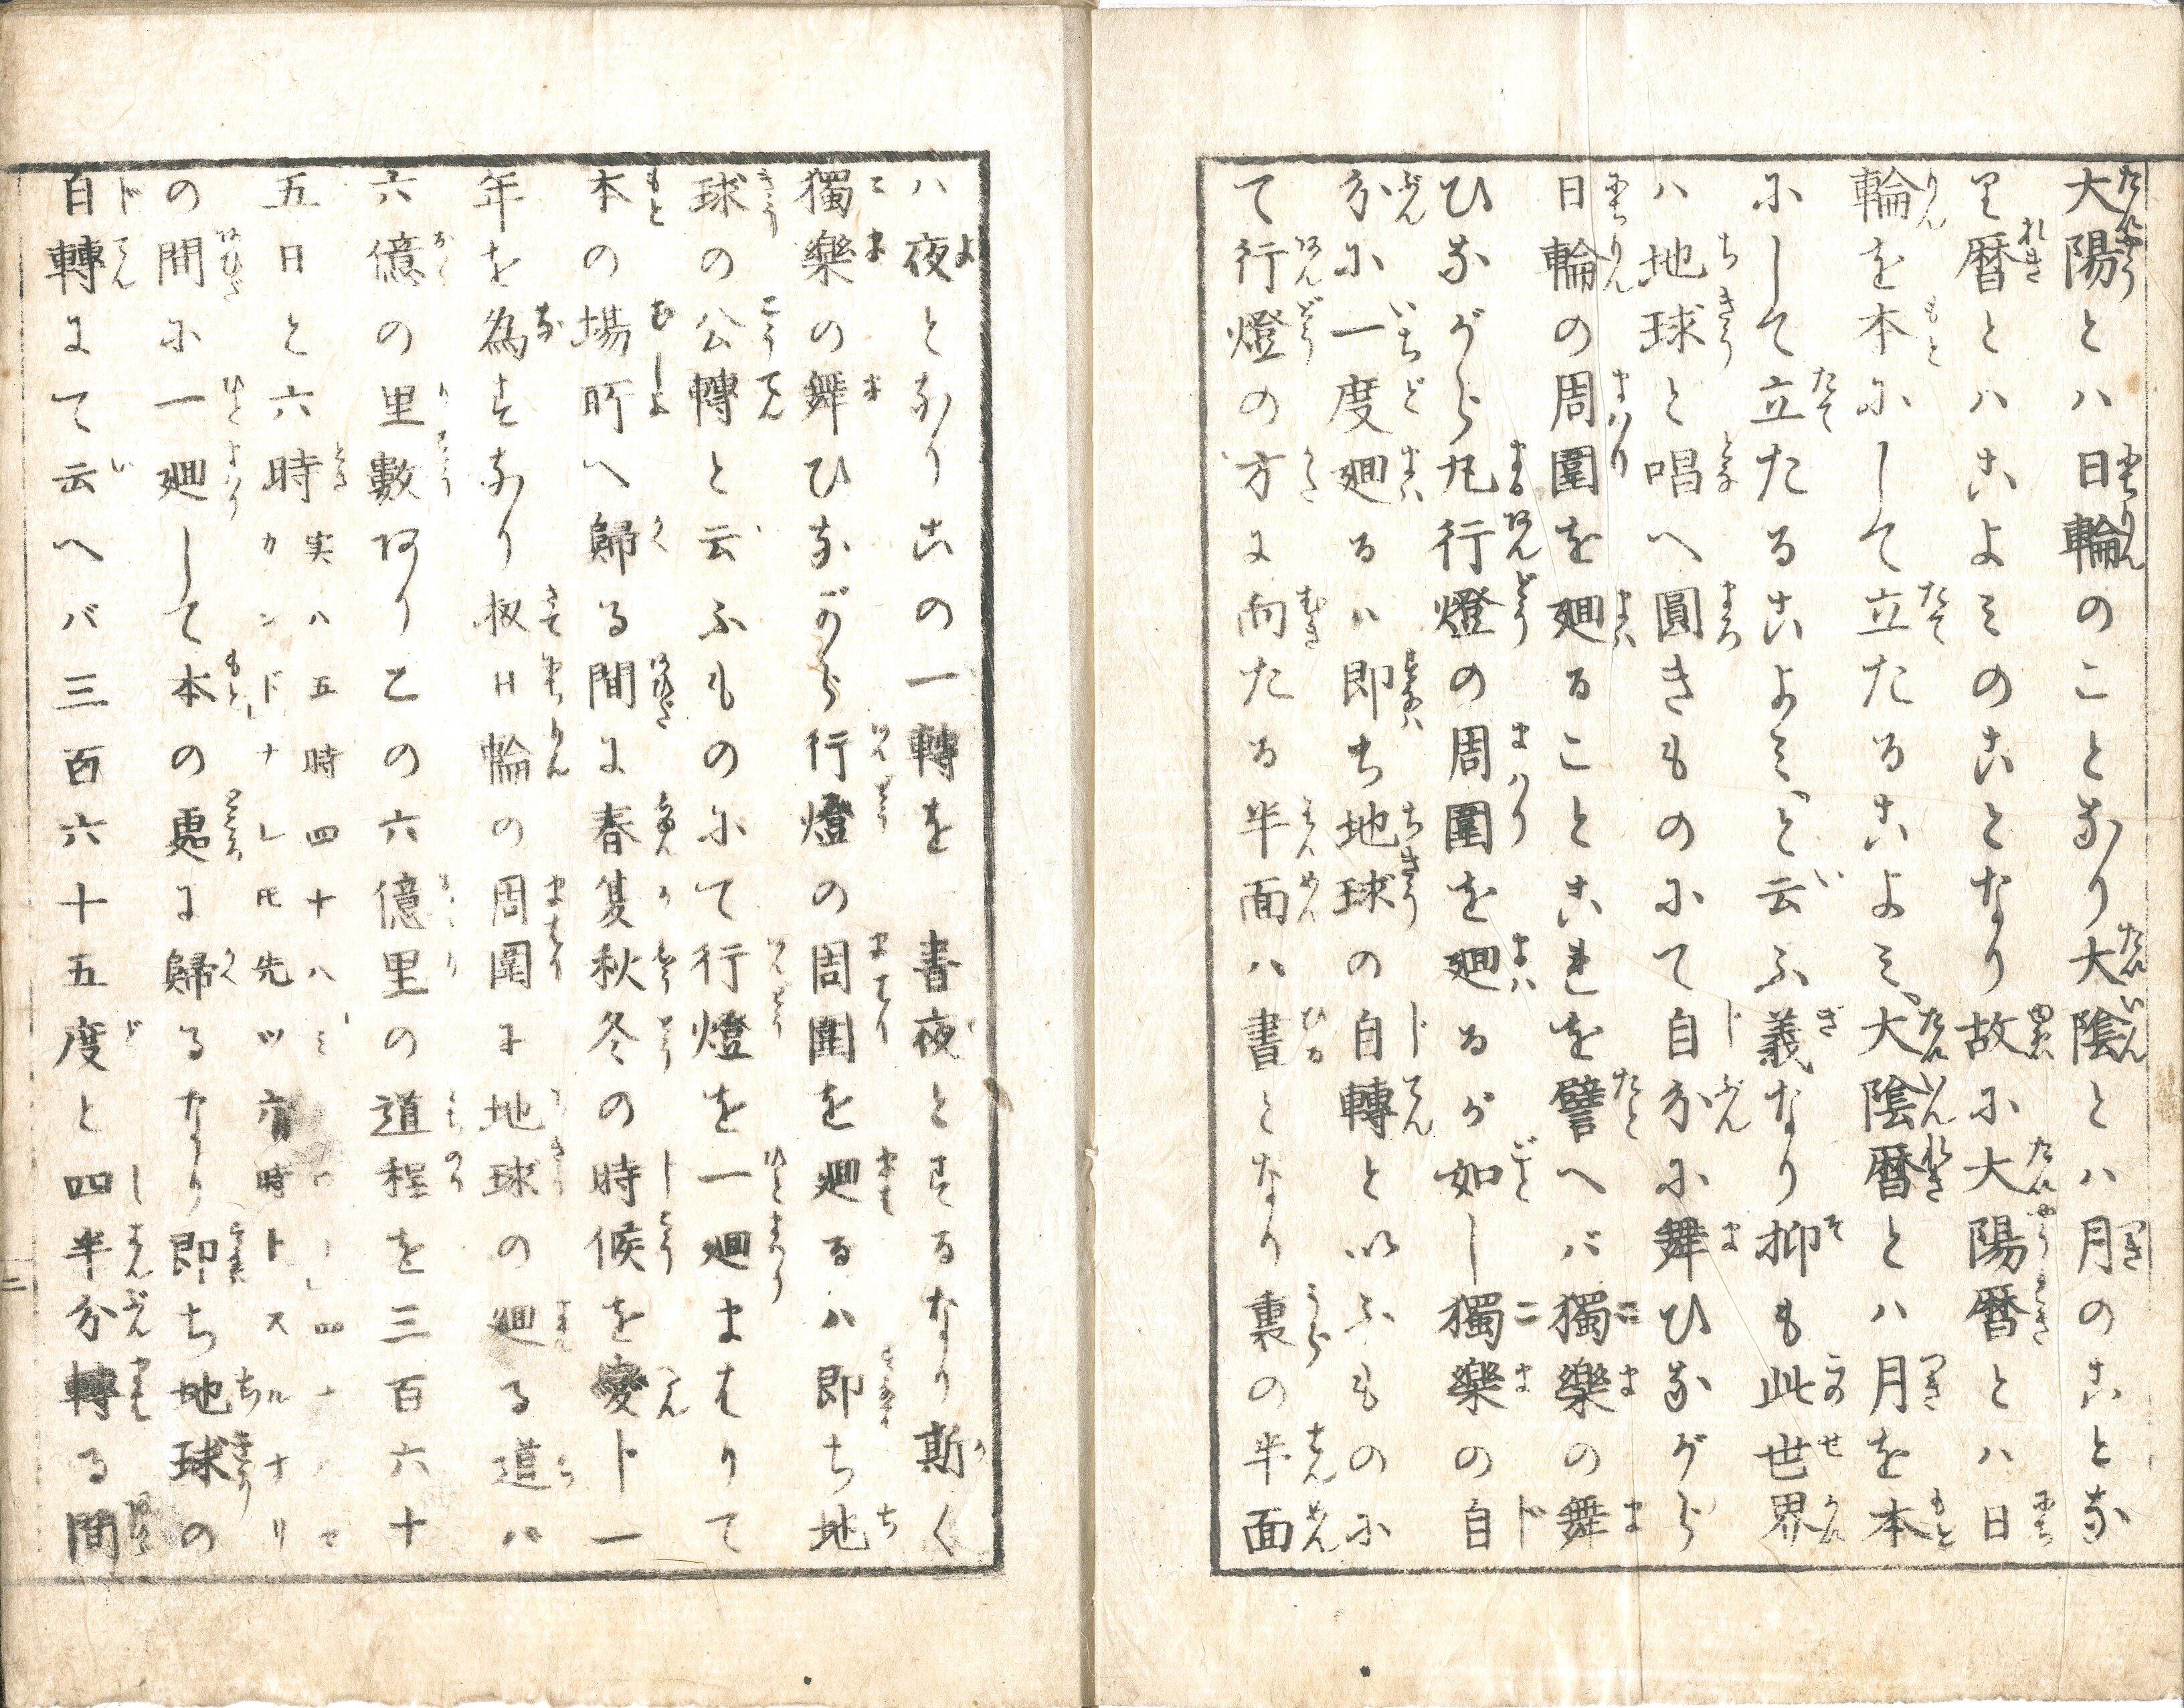 大陽とハ日輪のことなり大陰とハ月のことな
り暦とハこよミのことなり故に大陽暦とハ日
輪を本にして立たるこよミ、大陰暦とハ月を本
にして立たるこよミ、と云ふ義なり抑も此世界
ハ地球と唱へ圓きものにて自分に舞ひながら
日輪の周圍を廻ることこれを譬へバ獨樂の舞
ひながら丸行燈の周圍を廻るが如し獨樂の自
分に一度廻るハ即ち地球の自轉と以ふものに
て行燈の方に向たる半面ハ晝となり裏の半面
ハ夜となりこの一轉を 晝夜とするなり斯く
獨樂の舞ひながら行燈の周圍を廻るハ即ち地
球の公轉と云ふものにて行燈を一廻まはりて
本の場所へ歸る間に春夏秋冬の時候を變ト一
年を為すなり扨日輪の周圍に地球の廻る道ハ
六億の里數アリこの六億里の道程を三百六十
五日と六時 実ハ五時四十八
カンドナレ㪽先ツ六時トスルナリ
の間に一廻して本の處に歸るなり即ち地球の
自轉にて云へバ三百六十五度と四半分轉る間
二